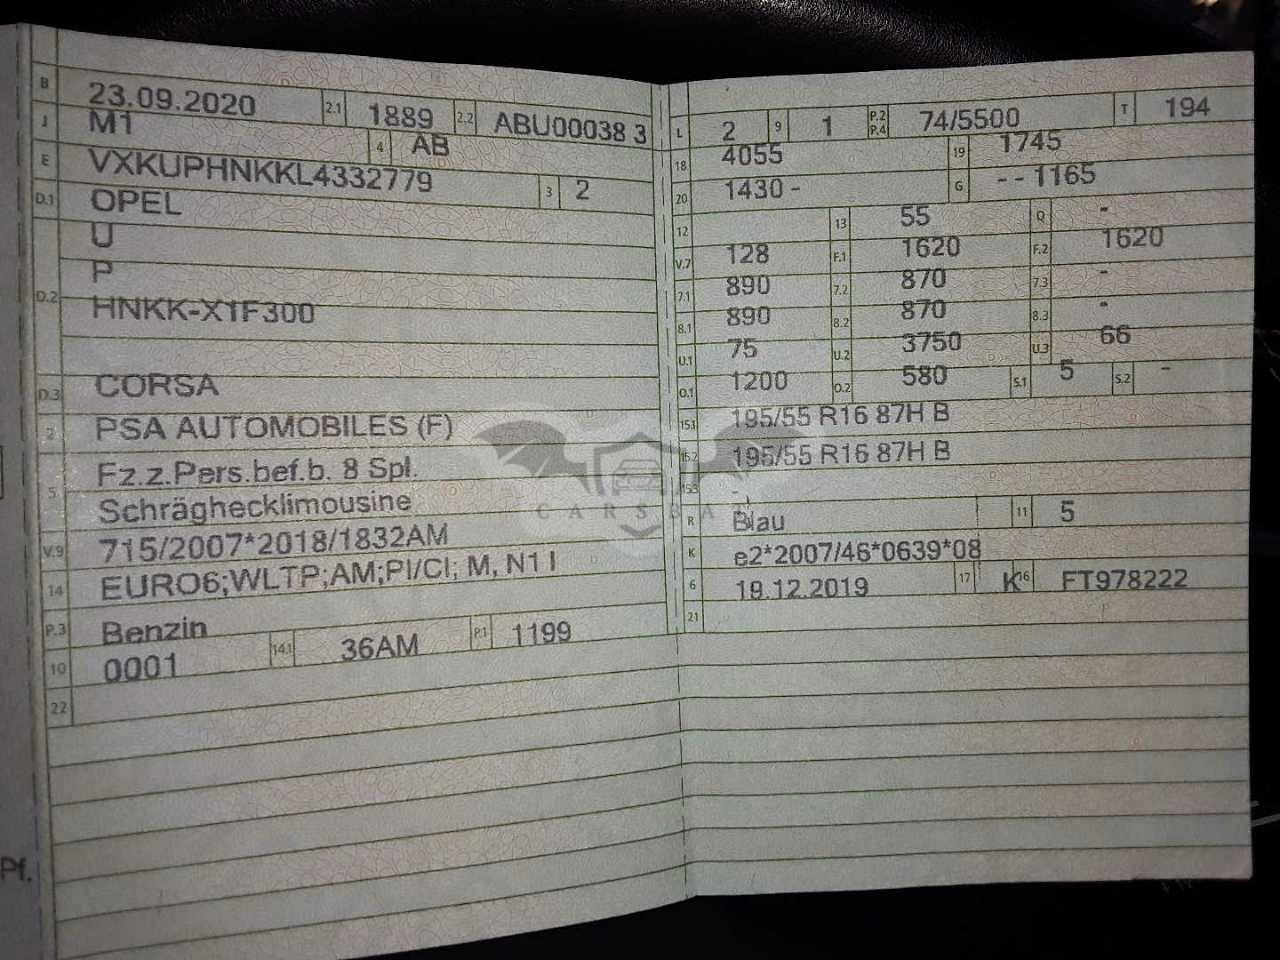 B 23.09.2020 2.1 1889 2.2 ABU00038 3
J M1 4 AB
E VXKUPHNKKL4332779 3 2
D.1 OPEL
U
P
D.2 HNKK-X1F300
D.3 CORSA
2 PSA AUTOMOBILES (F)
Fz.z.Pers.bef.b. 8 Spl.
5 Schräghecklimousine
V.9 715/2007*2018/1832AM
14 EURO6;WLTP;AM;PI/CI; M, N1 I
P.3 Benzin
10 0001 14.1 36AM P.1 1199
22
Pf.
L 2 9 1 P.2 P.4 74/5500 T 194
18 4055 19 1745
20 1430 - G - - 1165
12 13 55 Q -
V.7 128 F.1 1620 F.2 1620
7.1 890 7.2 870 7.3 -
8.1 890 8.2 870 8.3 -
U.1 75 U.2 3750 U.3 66
O.1 1200 O.2 580 S.1 5 S.2 -
15.1 195/55 R16 87H B
15.2 195/55 R16 87H B
15.3 -
R Blau 11 5
K e2*2007/46*0639*08
6 19.12.2019 17 K 16 FT978222
21
CARSBA